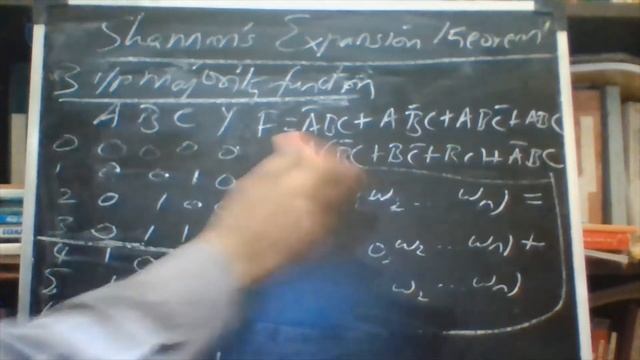 Shannon's Expansion Theorem
3 i/p majority function
A B C Y F = A̅BC + AB̅C + ABC̅ + ABC
0 0 0 0 0 B̅C + BC̅ + BC) + A̅BC
1 0 0 1 0 ω₂ ... ωₙ) =
2 0 1 0
3 0 1 1 0, ω₂ ... ωₙ) +
4 1 0
5 ω₂ ... ωₙ)